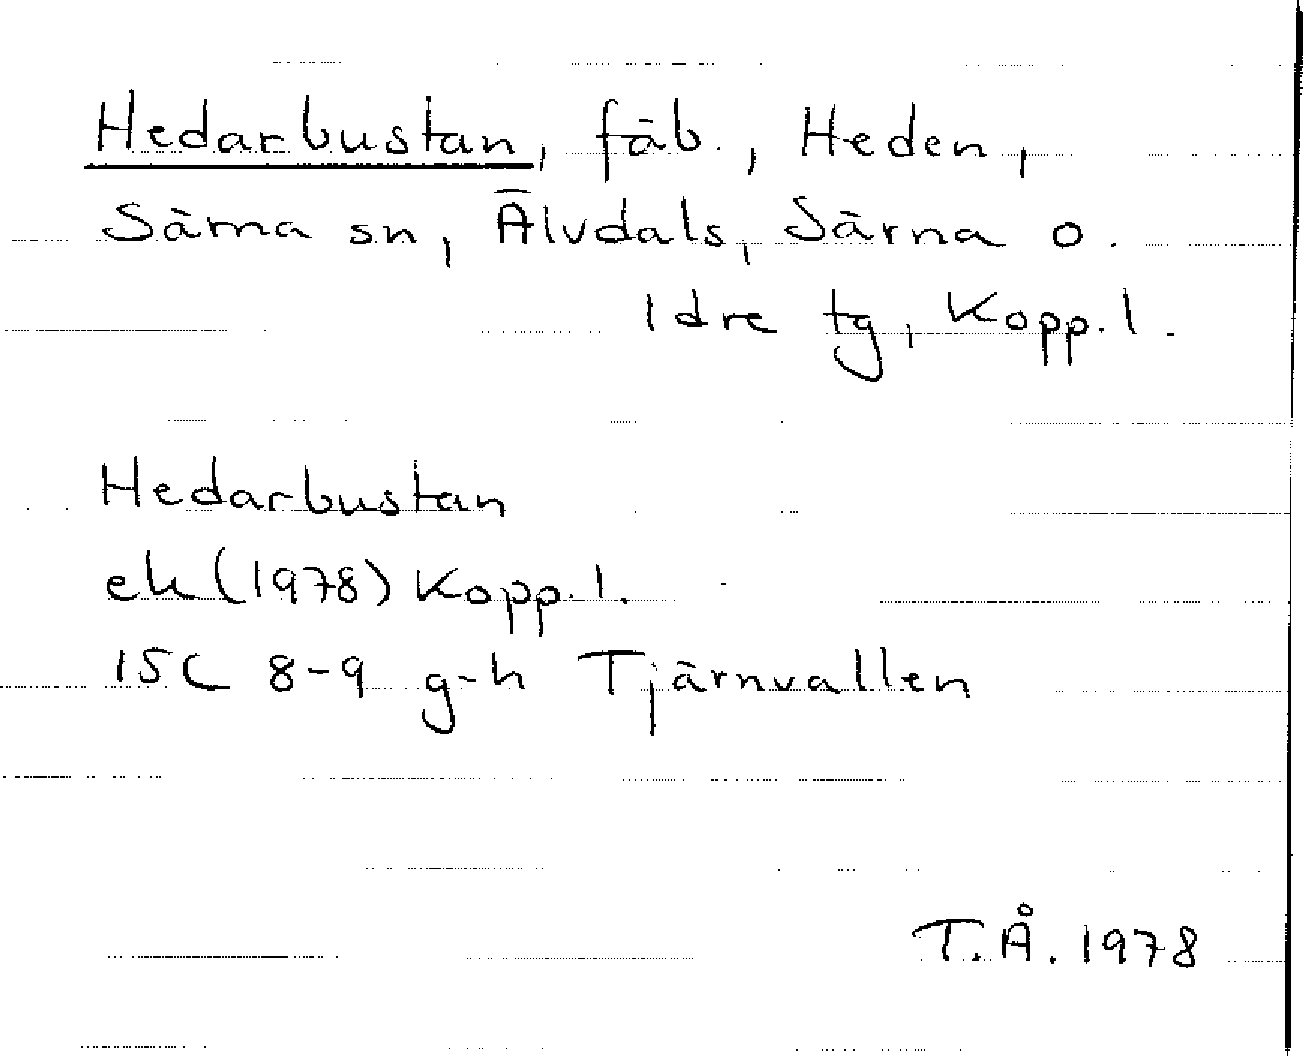 Hedarbustan, fäb., Heden,
Särna sn, Älvdals, Särna o.
Idre tg, Kopp. l.
Hedarbustan
ek (1978) Kopp. l.
15C 8-9 g-h Tjärnvallen
T.Å. 1978